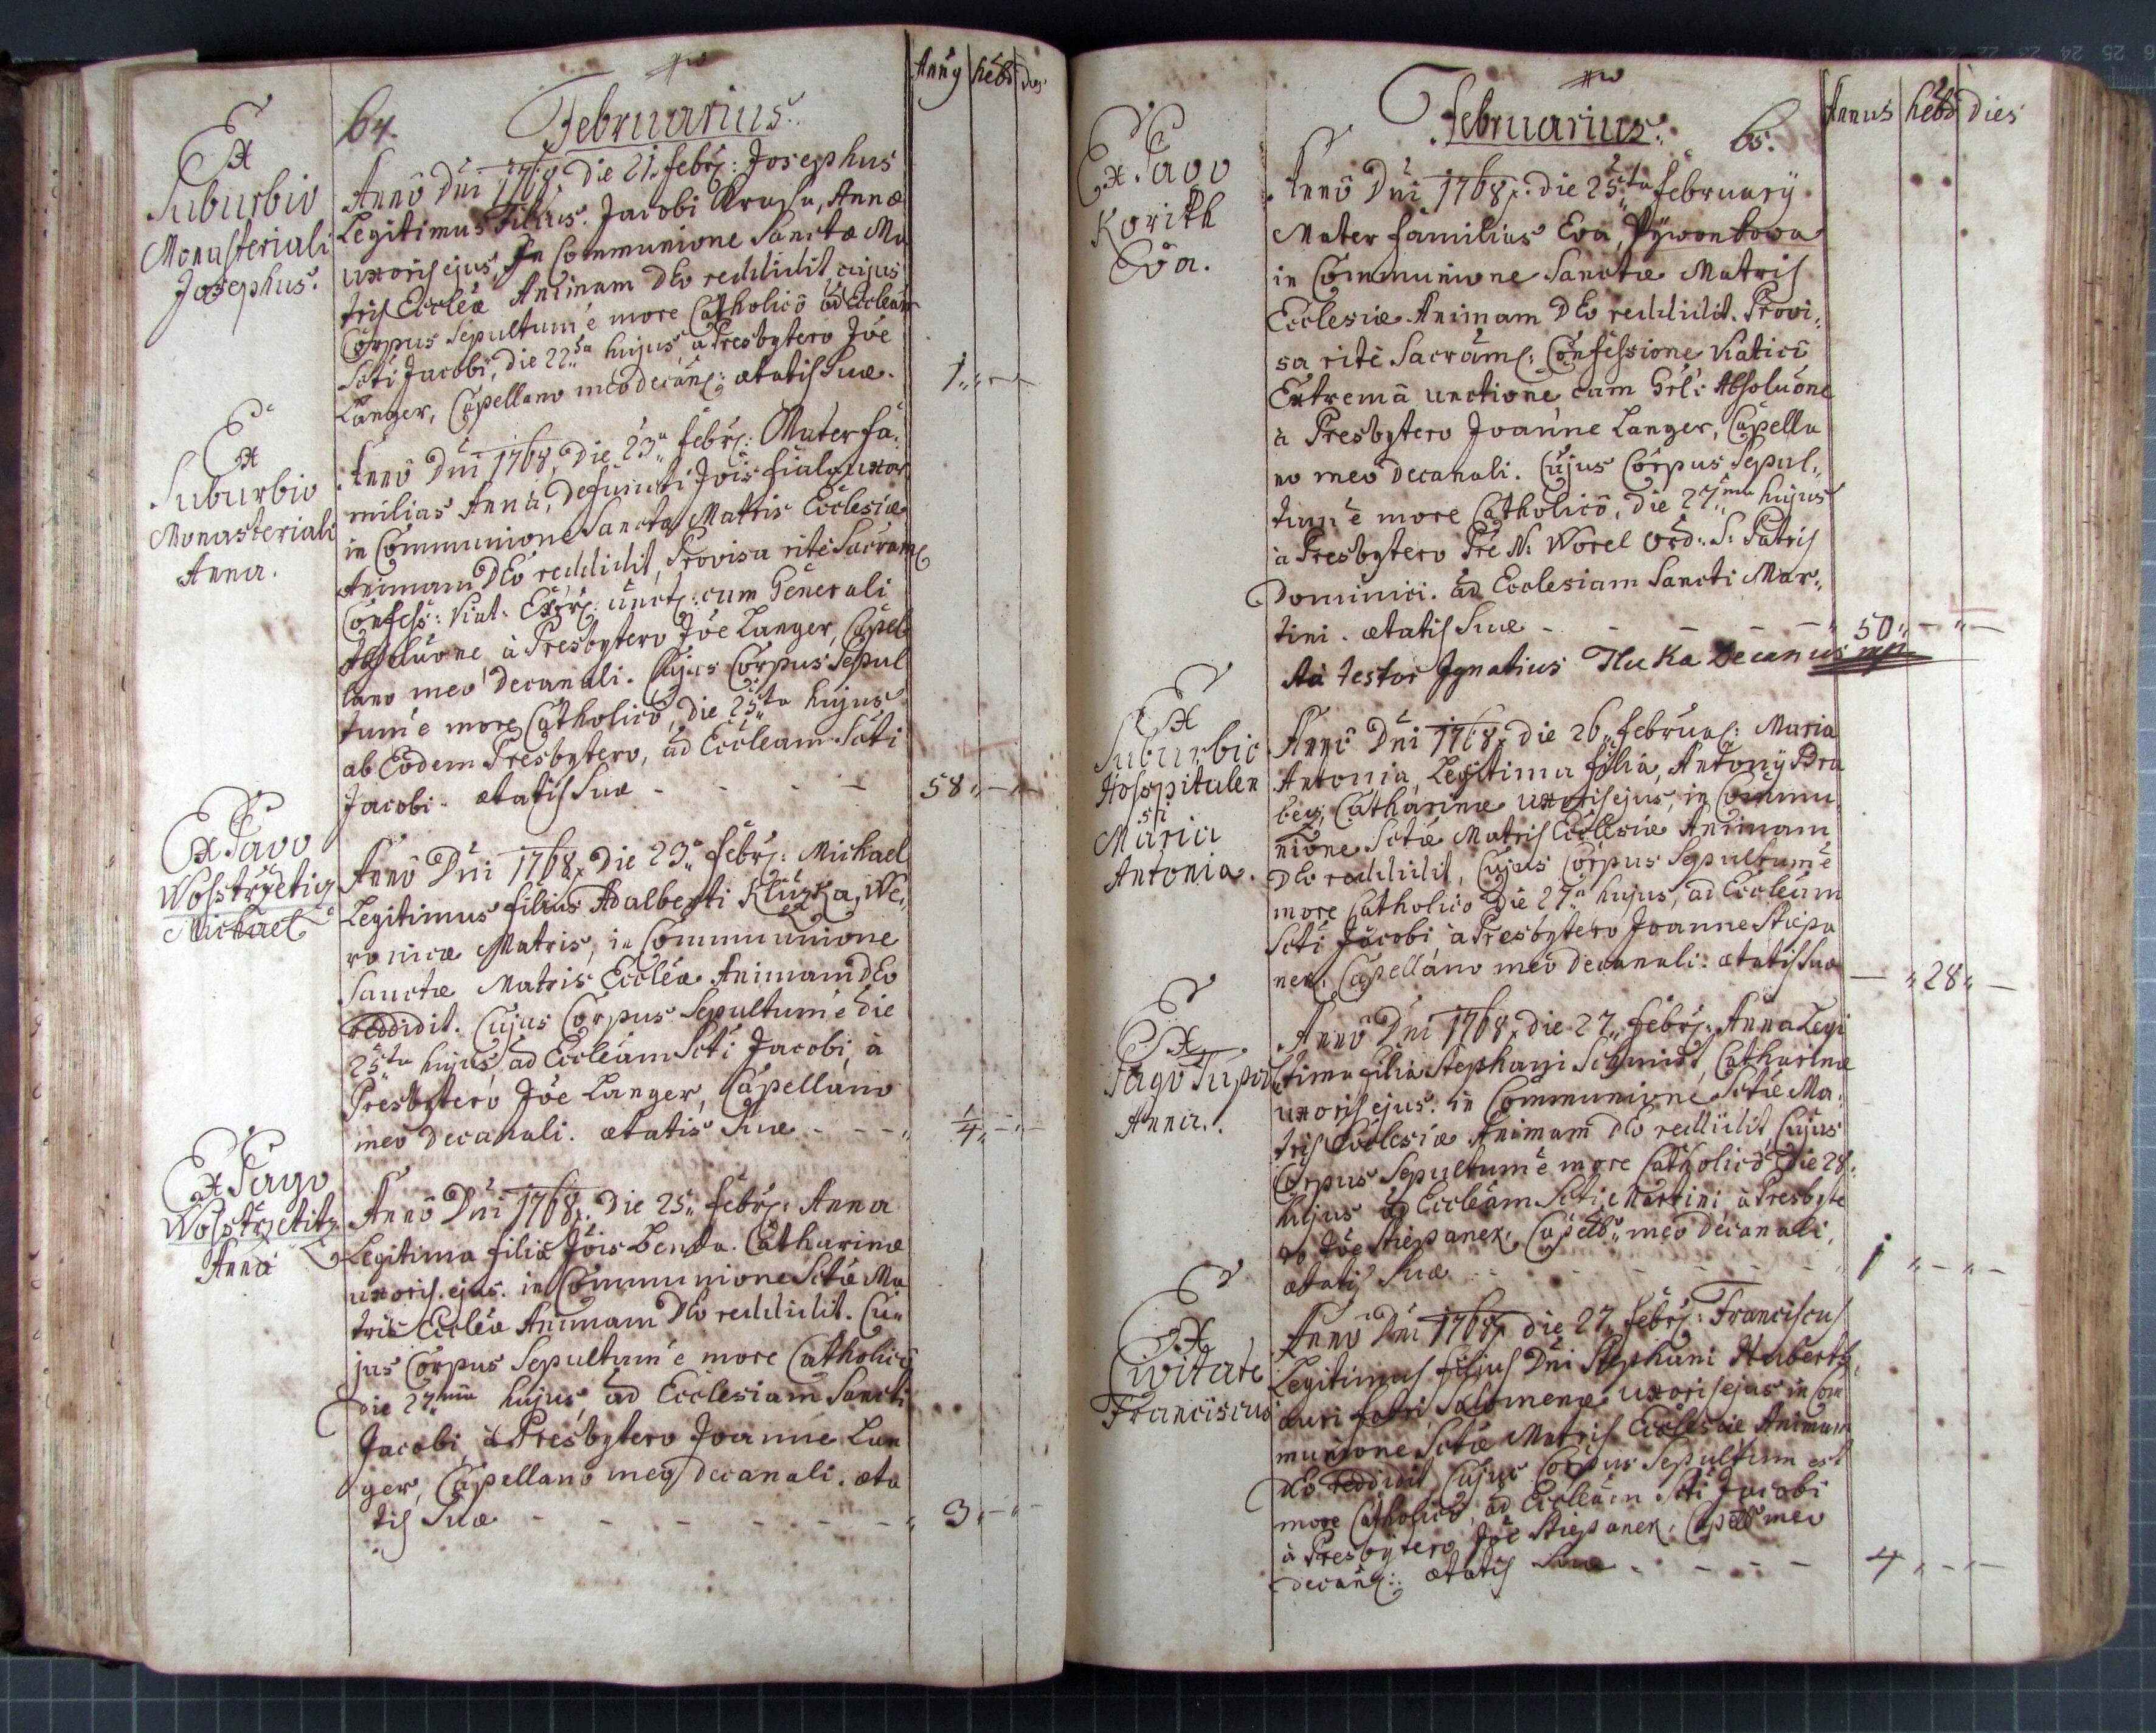 64. Februarius.
Annus hebd dies
Ex
Suburbio
Monasteriali
Josephus.
Anno Dni 1768, Die 21. febr: Josephus
Legitimus Filius Jacobi Annæ
uxoris ejus, In Communione Sanctæ Ma
tris Eccleæ Animam Deo reddidit, cujus
Corpus Sepultum é more Catholico ad Eccleam
Scti Jacobi, die 22da hujus, à Presbytero Jóe
Langer, Capellano meo decan: ætatis Suæ. 1 „ – –
Ex
Suburbio
Monasteriali
Anna.
Anno Dni 1768, Die 23a febr: Mater fa:
milias Anna, Defuncti Jois uxor
in Communione Sanctæ Matris Ecclesiæ
Animam Deo reddidit, Provisa rité Sacram:
Confess: Viat: Extr: unct: cum Generali
Absoluone à Presbytero Jóe Langer, Capel
lano meo Decanali. Cujus Corpus Sepul
tum é more Catholico, die 25ta hujus
ab Eodem Presbytero, ad Eccleam Scti
Jacobi. ætatis Suæ - - - - 58 „ – –
Ex Pago
Wolstrzetiz
Michael
Anno Dni 1768, Die 23a febr: Michael
Legitimus filius Adalberti Kluzka, We,
ronicæ Matris, in Communione
Sanctæ Matris Eccleæ Animam Deo
reddidit. Cujus Corpus Sepultum é die
25ta hujus, ad Eccleam Scti Jacobi, à
Presbytero Jóe Langer, Capellano
meo decanali. ætatis Suæ - - - „ 1/4 „ – –
Ex Pago
Wolstrzetitz
Anna
Anno Dni 1768. Die 25. febr: Anna
Legitima filia Jois Benda. Catharinæ
uxoris ejus. in Communione Sctæ Ma
tris Eccleæ Animam Deo reddidit. Cu„
jus Corpus Sepultum é more Catholico
die 27ma hujus, ad Ecclesiam Sancti
Jacobi, à Presbytero Joanne Lan
ger, Capellano meo decanali. æta
tis Suæ - - - - - - „ 3 „ – „ –
Februarius. 65.
Annus hebd dies
Ex Pago
Korith
Eva.
Anno Dni 1768. die 25ta february
Mater familias Eva,
in Communione Sanctæ Matris
Ecclesiæ Animam Deo reddidit. Provi,
sa rité Sacram: Confessione Viatici
Extremâ unctione cum Grli: Absoluone
à Presbytero Joanne Langer, Capella
no meo decanali. Cujus Corpus Sepul„
tum é more Catholico, die 27ma hujus
à Presbytero Pre N: Worel Ord: S: Patris
Dominici. ad Ecclesiam Sancti Mar„
tini. ætatis Suæ - - - - - „ 50 „ – „ –
Ita testor Ignatius Hluka Decanus mp
Ex
Suburbio
Hospitalen
si
Maria
Antonia.
Anno Dni 1768, die 26. februar: Maria
Antonia, Legitima filia, Antony Bra
bez, Catharinæ uxoris ejus, in Commu,
nione Sctæ Matris Ecclesiæ Animam
Deo reddidit, Cujus Corpus Sepultum é
more Catholico Die 27a hujus, ad Eccleam
Scti Jacobi, à Presbytero Joanne Stiepa
nek. Capellano meo decanali. ætatis Suæ – „ 28 „ –
Ex
Pago
Anna.
Anno Dni 1768, die 27. febr: Anna Legi
tima filia Stephani Schmidt, Catharinæ
uxoris ejus. in Communione Sctæ Ma:
tris Ecclesiæ Animam Deo reddidit, Cujus
Corpus Sepultum é more Catholico Die 28:
hujus ad Eccleam Scti Martini, à Presbyte
ro Jóe Stiepanek, Capello meo decanali,
ætatis Suæ - - - - - - - 1 „ – „ –
Ex
Civitate
Franciscus
Anno Dni 1768, die 27. febr: Franciscus
Legitimus filius Dni Stephani
auri fabri, Salomenæ uxoris ejus in Com
munione Sctæ Matris Ecclesiæ Animam
Deo reddidit, Cujus Corpus Sepultum est
more Catholico, ad Eccleam Scti Jacobi
à Presbytero Jóe Stiepanek, Capello meo
decan: ætatis Suæ - - - - 4 „ – „ –